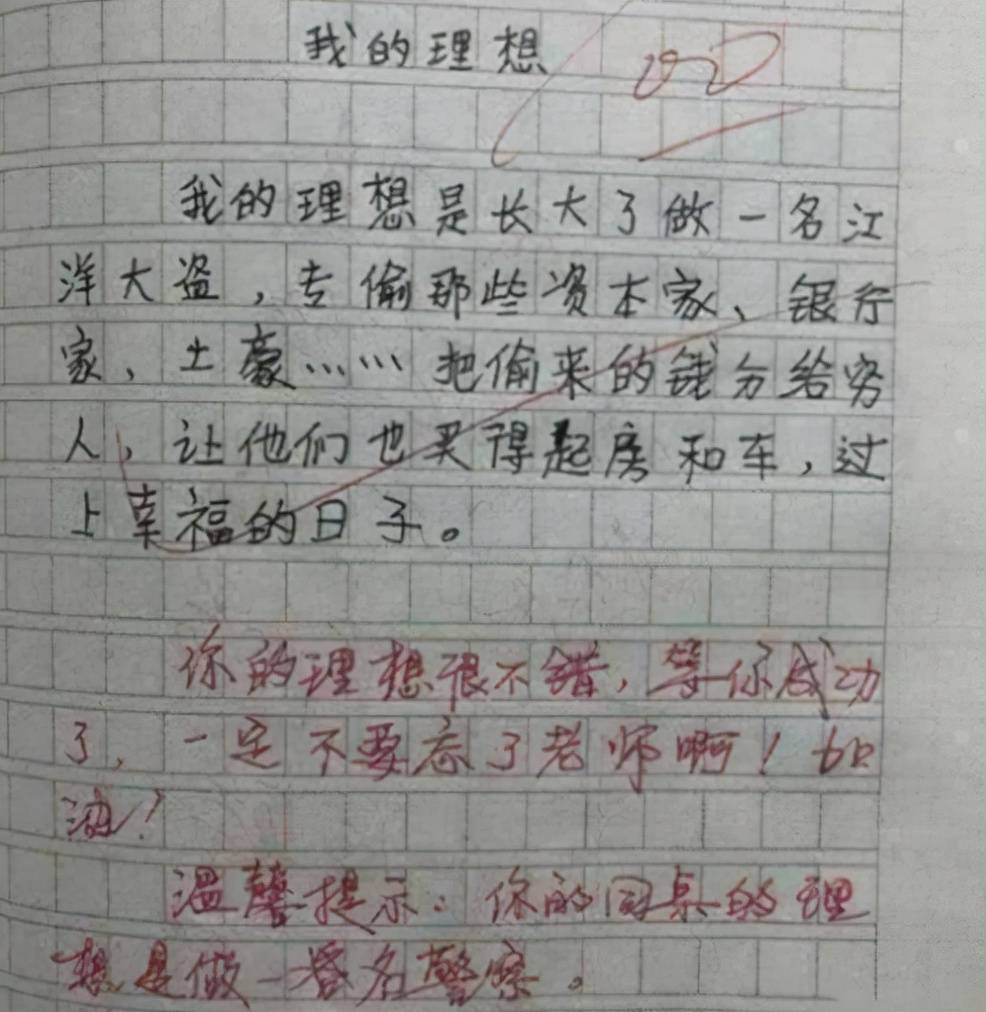 我的理想
我的理想是长大了做一名江
洋大盗，专偷那些资本家、银行
家、土豪……把偷来的钱分给穷
人，让他们也买得起房和车，过
上幸福的日子。
你的理想很不错，等你成功
了，一定不要忘了老师啊！加
油！
温馨提示：你的同桌的理
想是做一名警察。